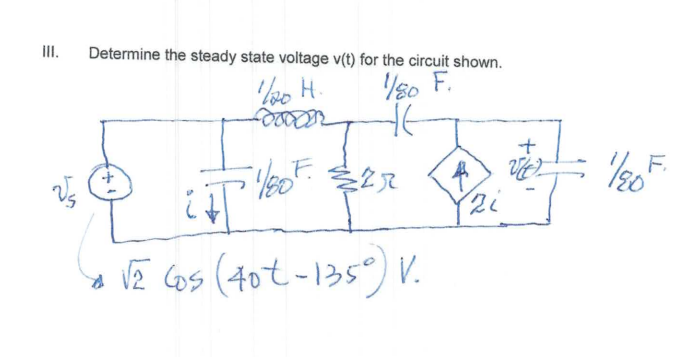 III. Determine the steady state voltage v(t) for the circuit shown.
1/20 H. 1/80 F.
+
-
Vs
i
1/80 F.
2Ω
2i
+
v(t)
-
1/80 F.
√2 Cos (40t - 135°) V.